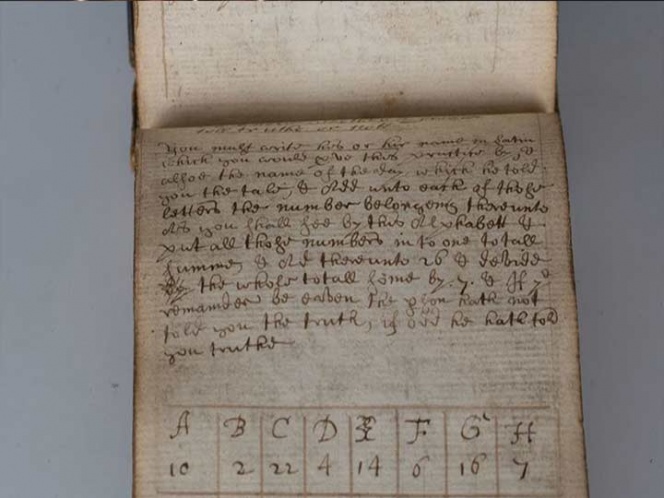 tell truthe or not
You must write his or her name in Latin
which you would prove this practice by, &
allsoe the name of the day which he told
you the tale, & Add unto each of those
letters the number belongeing thereunto
As you shall see by this Alphabett &
put all those numbers in to one totall
summe, & Ad thereunto 26 & devide
the whole totall some by .7. & If yᵉ
remainder be eaven the pson hath not
told you the truth, if odd he hath told
you truthe
A B C D E F G H
10 2 22 4 14 6 16 7